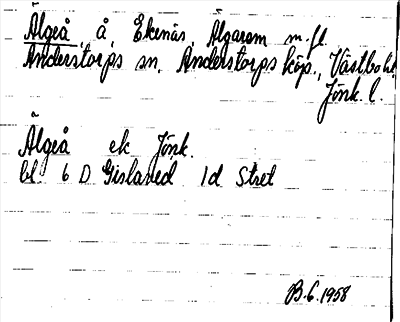 Älgeå, å, Ekenäs, Älgarem m.fl.
Anderstorps sn, Anderstorps köp., Västbo hd
Jönk. l.
Älgeå ek Jönk.
bl 6 D Gislaved 1d Stret
B.6.1958